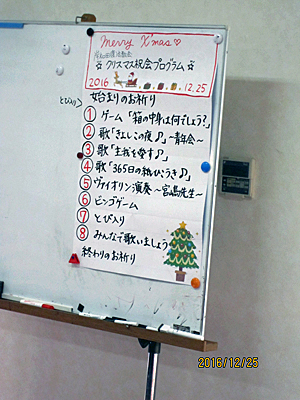 Merry X'mas♡
☆クリスマス祝会プログラム☆
2016 12.25
とび入り＞
始まりのお祈り
① ゲーム「箱の中身は何でしょう?」
② 歌「きよしこの夜♪」～青年会～
③ 歌「主我を愛す♪」
④ 歌「365日の紙ひこうき♪」
⑤ ヴァイオリン演奏～宮島先生～
⑥ ビンゴゲーム
⑦ とび入り
⑧ みんなで歌いましょう
終わりのお祈り
2016/12/25